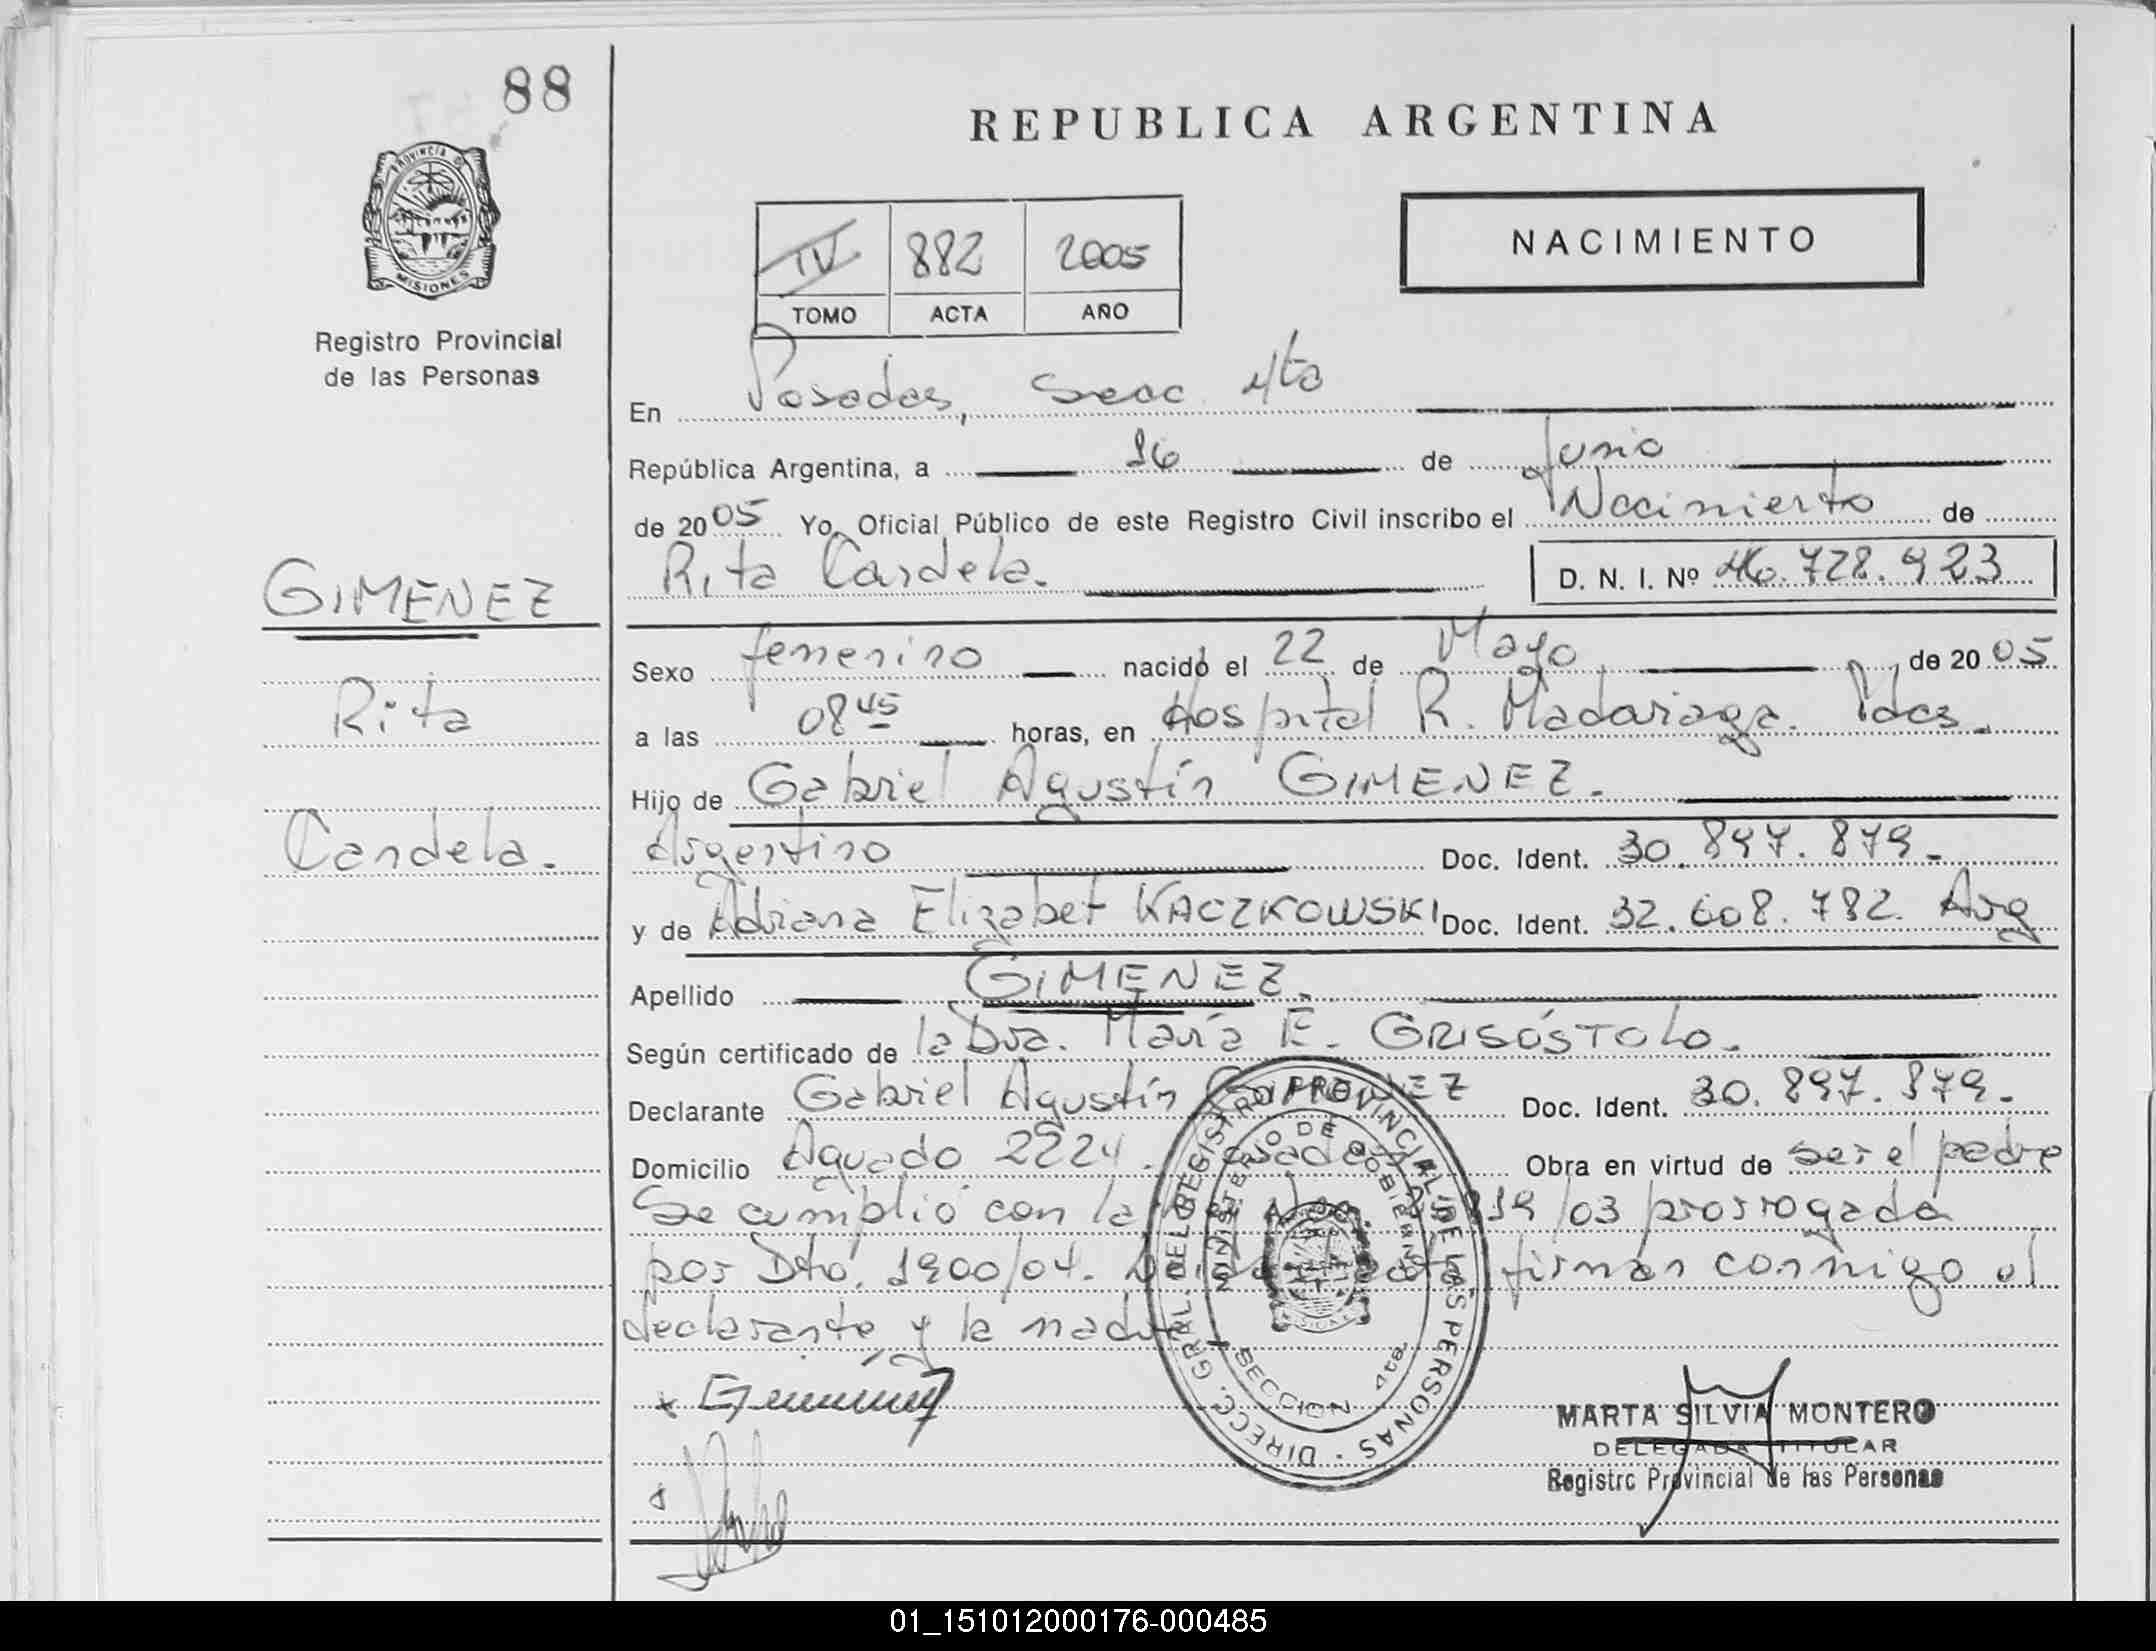 88
PROVINCIA D MISIONES
Registro Provincial
de las Personas
GIMENEZ
Rita
Candela.
REPUBLICA ARGENTINA
NACIMIENTO
IV 882 2005
TOMO ACTA AÑO
En Posadas, Secc. 4ta
República Argentina, a 16 de Junio
de 2005 Yo, Oficial Público de este Registro Civil inscribo el Nacimiento de
Rita Candela. D. N. I. Nº 46.728.923
Sexo femenino nacido el 22 de Mayo de 2005
a las 08 45 horas, en Hospital R. Madariaga. Pdas.
Hijo de Gabriel Agustín GIMENEZ.
Argentino Doc. Ident. 30.897.879.
y de Adriana Elizabet KACZKOWSKI Doc. Ident. 32.608.782. Arg
Apellido GIMENEZ.
Según certificado de la Dra. María E. GRISÓSTOLO.
Declarante Gabriel Agustín GIMENEZ Doc. Ident. 30.897.879.
Domicilio Aguado 2224. Posadas Obra en virtud de ser el padre
Se cumplió con la Ley Nro. 25.819/03 prorrogada
por Dto. 1900/04. firman conmigo el
declarante y la madre
DIRECC. GRAL. DEL REGISTRO PROVINCIAL DE LAS PERSONAS
MINISTERIO DE GOBIERNO
SECCION 4ta.
MARTA SILVIA MONTERO
DELEGADA TITULAR
Registro Provincial de las Personas
01_151012000176-000485